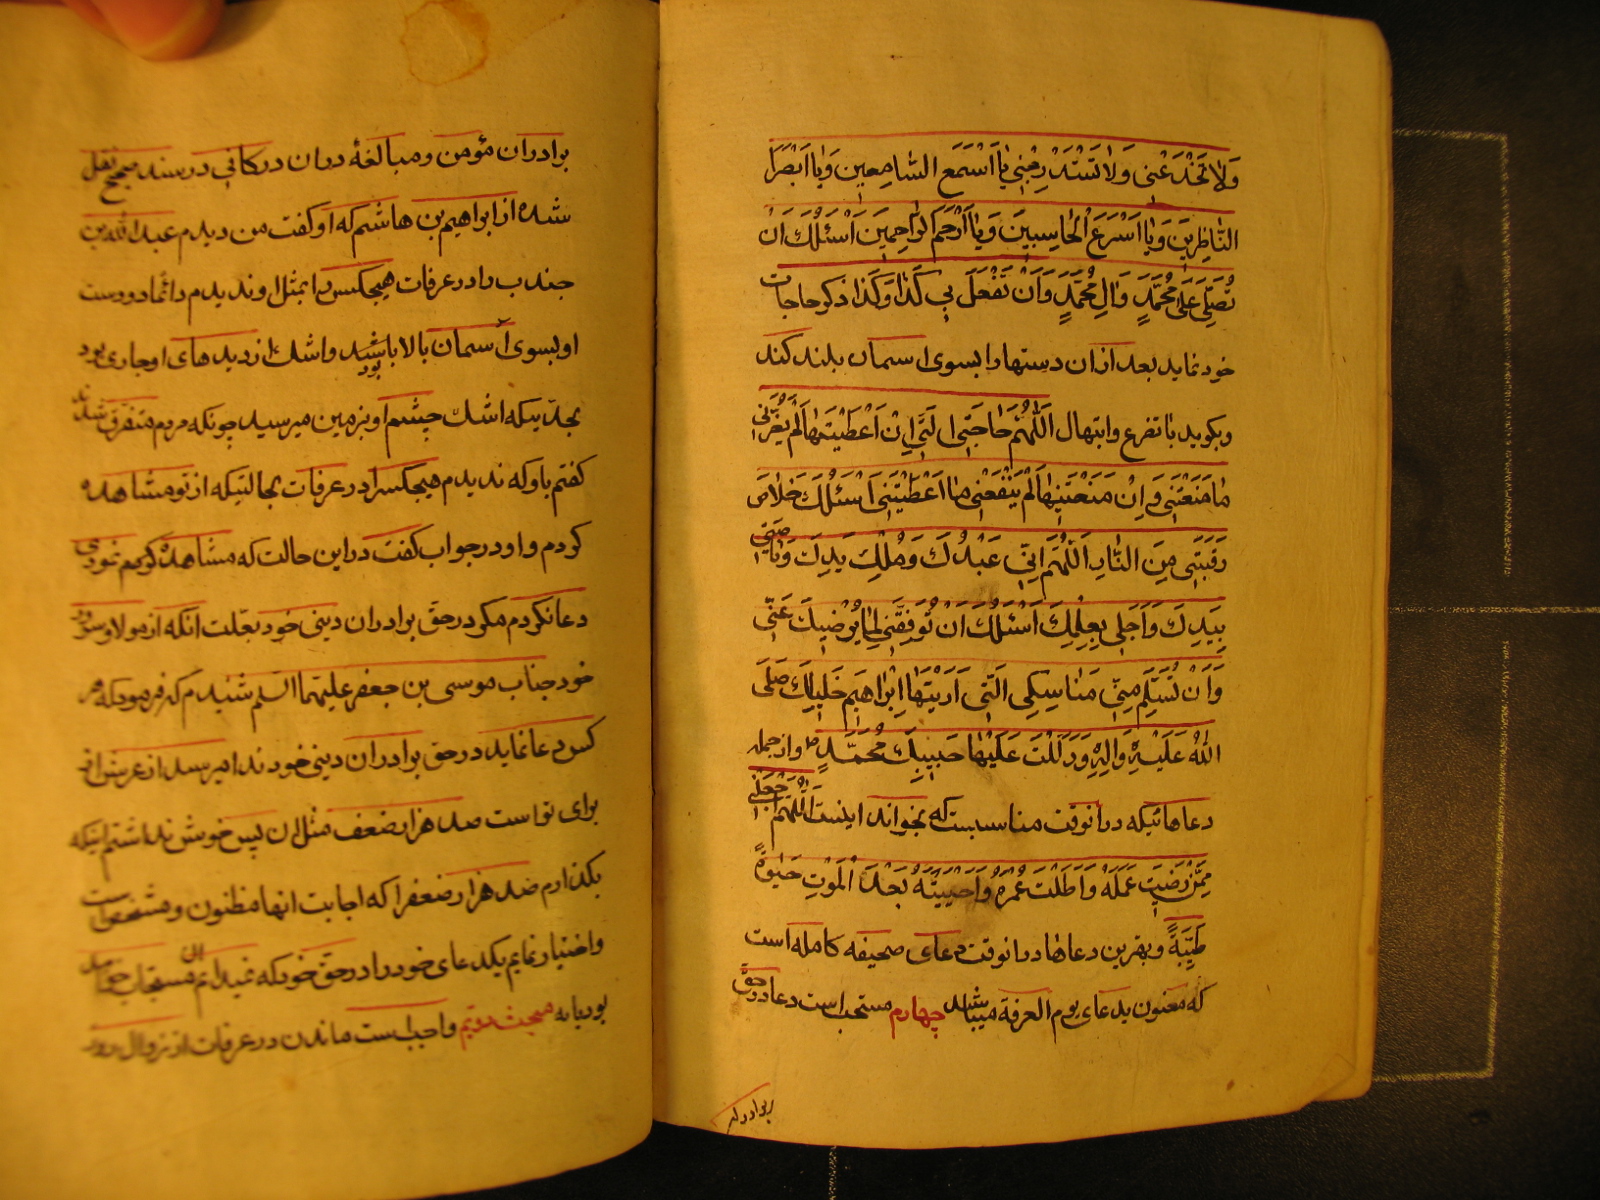 وَلاٰ تَخْدَعْنِی وَلاٰ تَسْتَدْرِجْنِی یٰا اَسْمَعَ السّٰامِعِینَ وَیٰا اَبْصَرَ
النّٰاظِرِینَ وَیٰا اَسْرَعَ الْحٰاسِبِینَ وَیٰا اَرْحَمَ الرّٰاحِمِینَ اَسْئَلُكَ اَنْ
تُصَلِّیَ عَلیٰ مُحَمَّدٍ وَاٰلِ مُحَمَّدٍ وَاَنْ تَفْعَلَ بِی کَذٰا وَکَذٰا ذکر حاجات
خود نماید بعد ازان دستها را بسوی اسمان بلند کند
وبکوید با تضرع وابتهال اَللّٰهُمَّ حٰاجَتِی الَّتِی اِنْ اَعْطَیْتَنِیهٰا لَمْ یَضُرَّنِی
مٰا مَنَعْتَنِی وَاِنْ مَنَعْتَنِیهٰا لَمْ یَنْفَعْنِی مٰا اَعْطَیْتَنِی اَسْئَلُكَ خَلاٰصَ
رَقَبَتِی مِنَ النّٰارِ اَللّٰهُمَّ اِنِّی عَبْدُكَ وَمُلْكِ یَدِكَ وَنٰاصِیَتِی
بِیَدِكَ وَاَجَلِی بِعِلْمِكَ اَسْئَلُكَ اَنْ تُوَفِّقَنِی لِمٰا یُرْضِیكَ عَنِّی
وَاَنْ تُسَلِّمَ مِنِّی مَنٰاسِکِی الَّتِی اَرَیْتَهٰا اِبْرٰاهِیمَ خَلِیلَكَ صَلَّی
اللّٰهُ عَلَیْهِ وَاٰلِهِ وَدَلَلْتَ عَلَیْهٰا حَبِیبَكَ مُحَمَّدٍ ص وازجمله
دعاهائیکه درانوقت مناسبست که بخواند اینست اَللّٰهُمَّ اجْعَلْنِی
مِمَّنْ رَضِیتَ عَمَلَهُ وَاَطَلْتَ عُمْرَهُ وَاَحْیَیْتَهُ بَعْدَ الْمَوْتِ حَیٰوةً
طَیِّبَةً وبهترین دعاها درانوقت دعای صحیفه کامله است
که معنون بدعای یوم العرفة میباشد چهارم مستحب است دعا در حق
برادران
برادران مؤمن ومبالغهٔ دران درکافی در سند صحیح نقل
شده از ابراهیم بن هاشم که او کفت من دیدم عبدالله بن
جندب را در عرفات هیچکس را بمثل او ندیدم دائما دو دست
او بسوی آسمان بالا باشد بود واشك از دیدهای او جاری بود
بحدّیکه اشك چشم او بزمین میرسید چونکه مردم متفرق شدند
کفتم باو که ندیدم هیچکس را در عرفات بحالتیکه از تو مشاهده
کردم واو در جواب کفت در این حالت که مشاهدهٔ کردیم نمودی
دعا نکردم مکر در حق برادران دینی خود بعلت انکه از مولا و
خود جناب موسی بن جعفر علیهما السلم شنیدم که فرمود که هر
کس دعا نماید در حق برادران دینی خود ندا میرسد از عرش از
برای تو است صد هزار ضعف مثل ان پس خوش نداشتم اینکه
بکذارم صد هزار ضعفرا که اجابت انها مظنون و است
واختیار نمایم یکدعای خود را در حق خود که نمیدانم مستجاب خواهد
بود یا نه مبحث دویم واجبست ماندن در عرفات از زوال روز